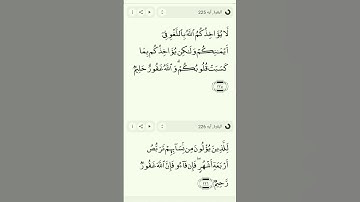 البقرة، آية 225
لَّا يُؤَاخِذُكُمُ ٱللَّهُ بِٱللَّغْوِ فِىٓ
أَيْمَـٰنِكُمْ وَلَـٰكِن يُؤَاخِذُكُم بِمَا
كَسَبَتْ قُلُوبُكُمْ ۗ وَٱللَّهُ غَفُورٌ حَلِيمٌ
٢٢٥
البقرة، آية 226
لِّلَّذِينَ يُؤْلُونَ مِن نِّسَآئِهِمْ تَرَبُّصُ
أَرْبَعَةِ أَشْهُرٍ ۖ فَإِن فَآءُو فَإِنَّ ٱللَّهَ غَفُورٌ
رَّحِيمٌ ٢٢٦